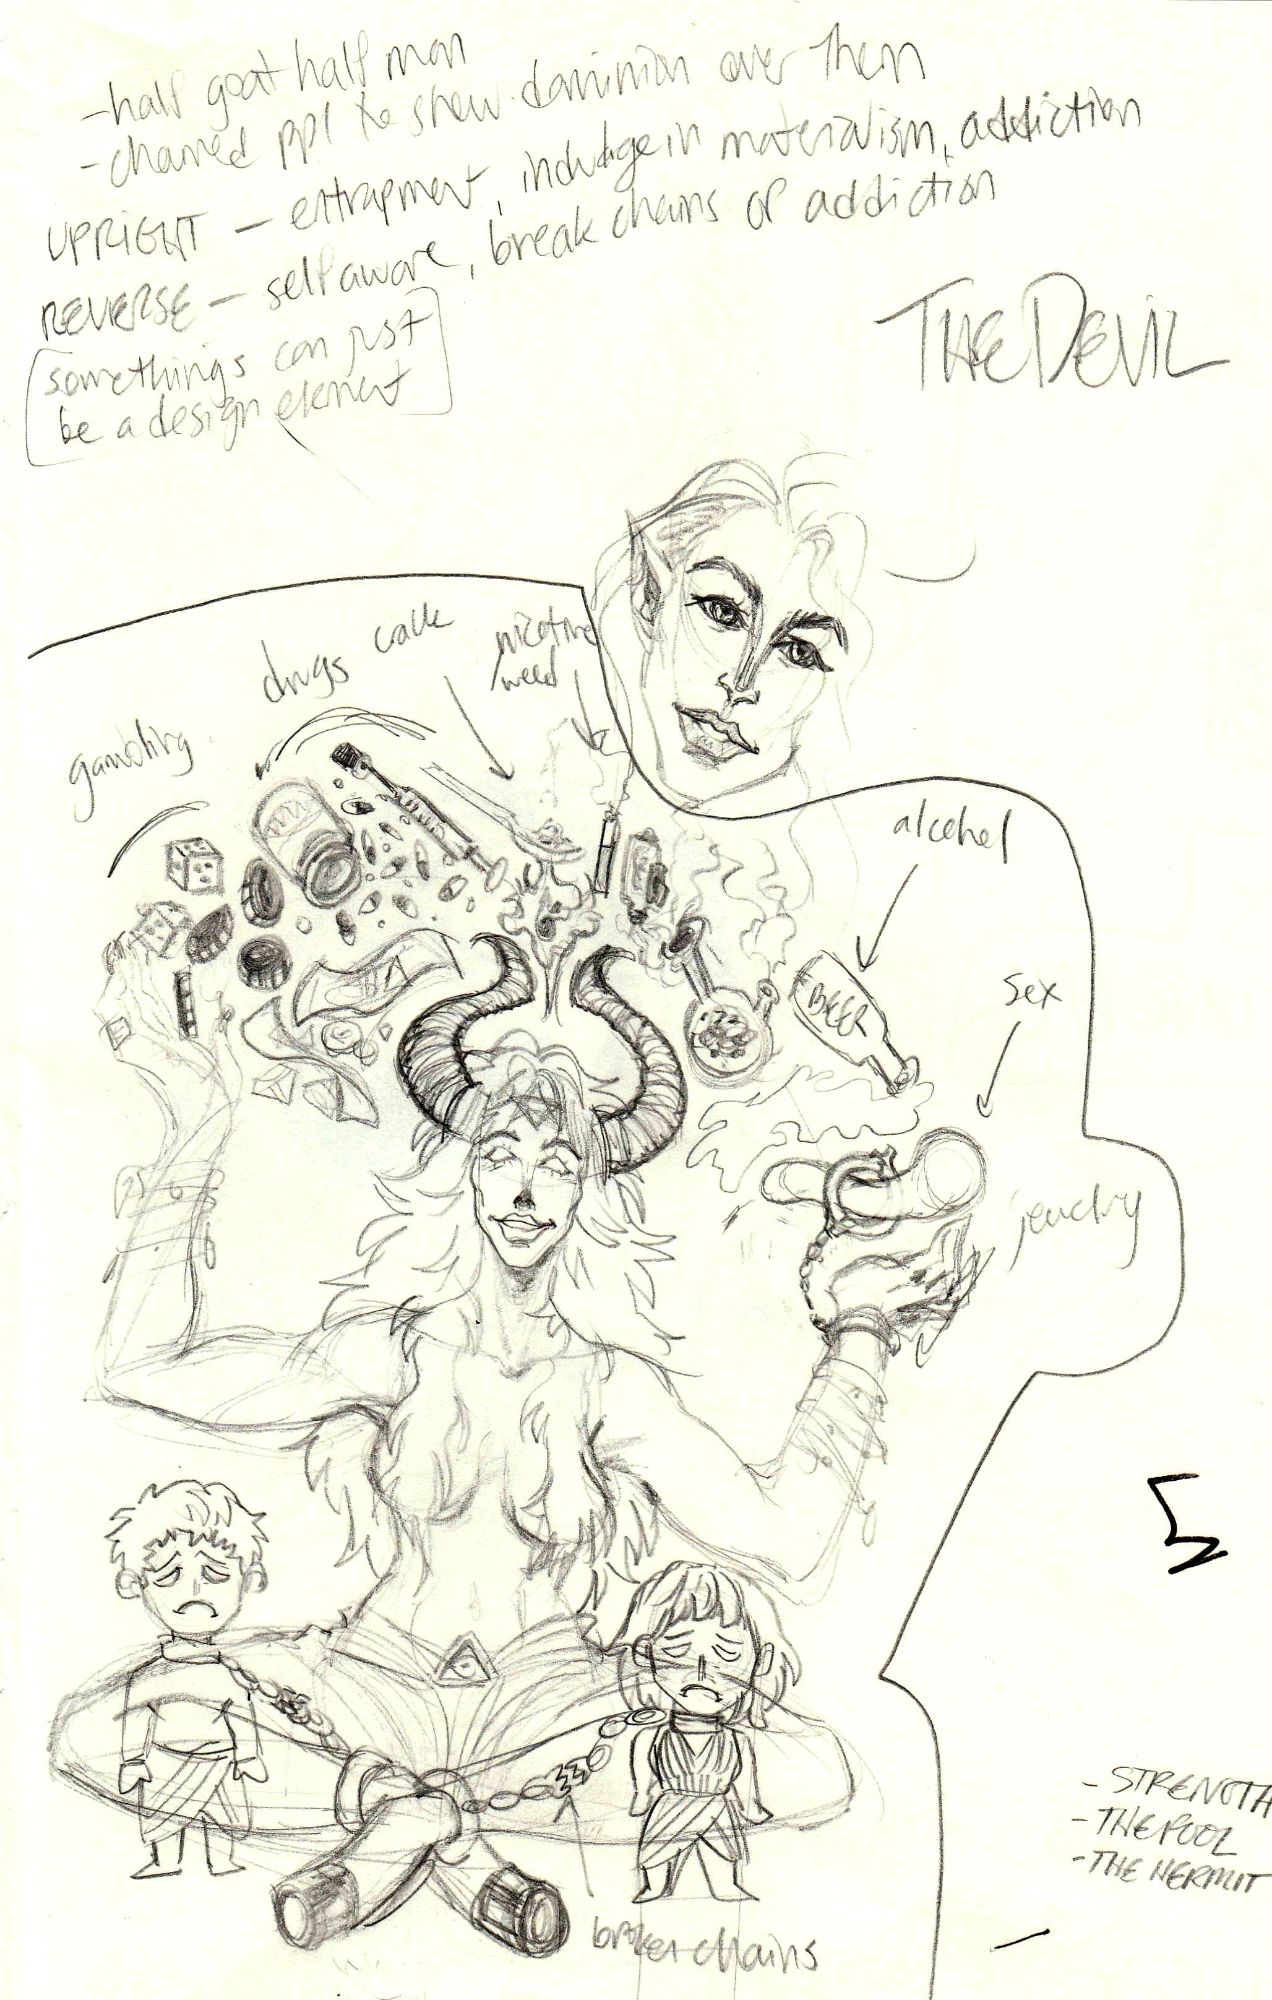 - half goat half man
- chained ppl to show dominion over them
UPRIGHT — entrapment, indulge in materialism, addiction
REVERSE — self aware, break chains of addiction
somethings can just
be a design element
THE DEVIL
nicotine
/weed
drugs
gambling
alcohol
BEER
sex
jewelry
- STRENGTH
- THE FOOL
- THE HERMIT
broken chains